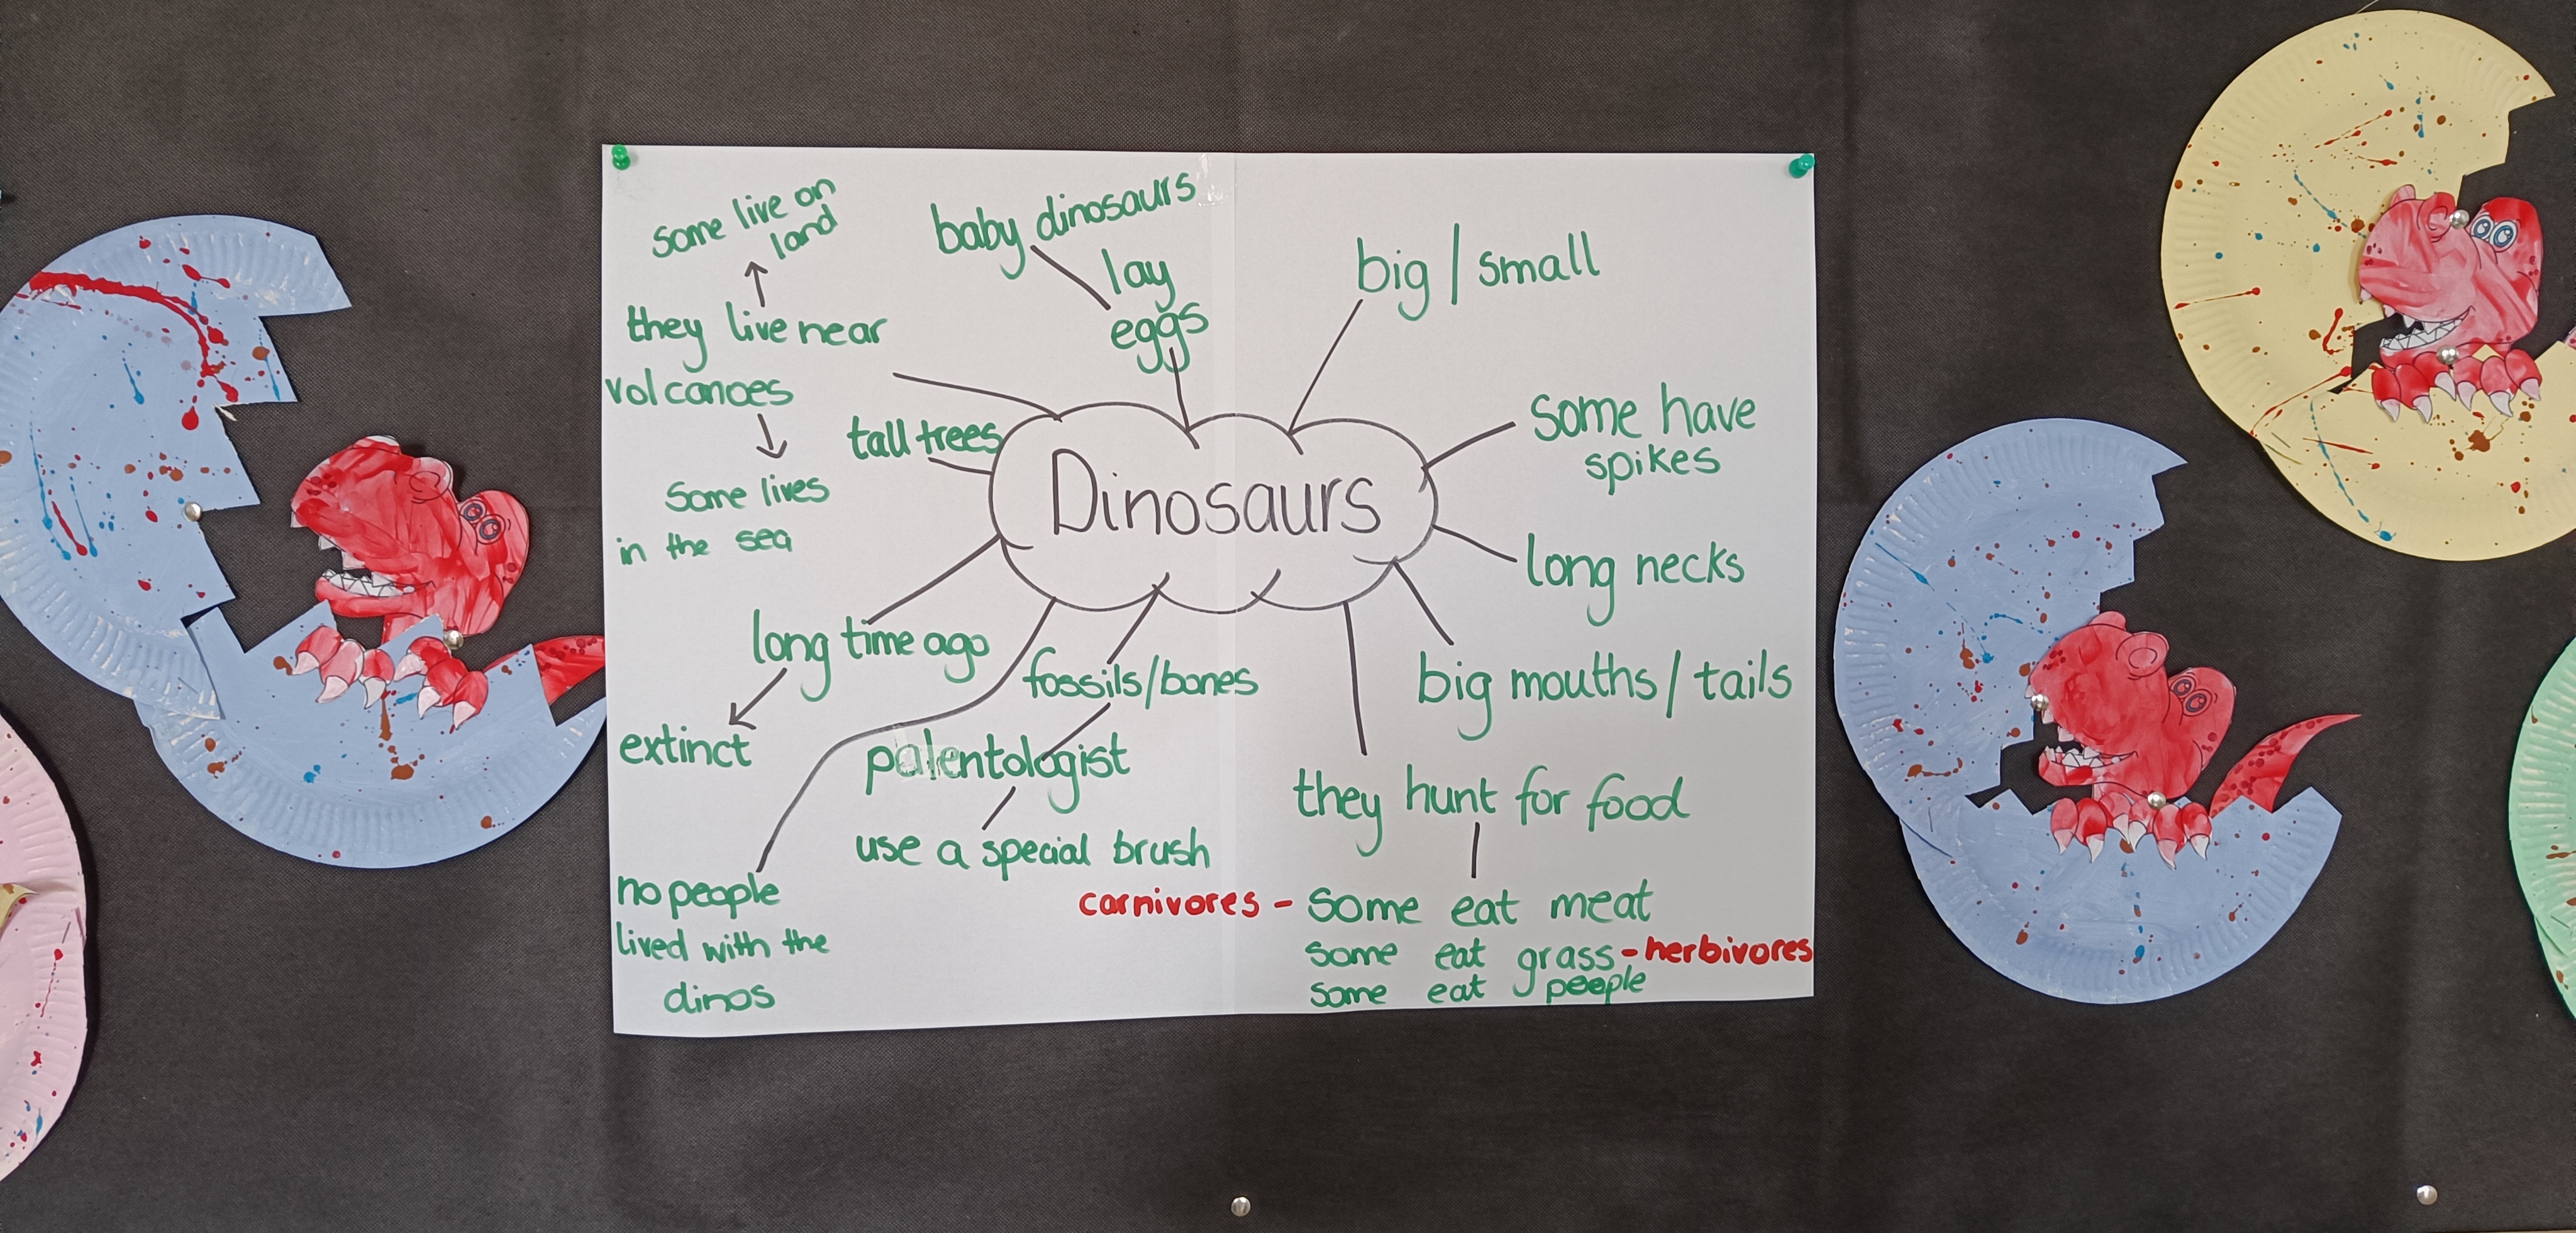 some live on
land
they live near
volcanoes
some lives
in the sea
baby dinosaurs
lay
eggs
big / small
tall trees
Dinosaurs
some have
spikes
long necks
big mouths / tails
long time ago
extinct
fossils/bones
palentologist
use a special brush
no people
lived with the
dinos
they hunt for food
carnivores - some eat meat
some eat grass - herbivores
some eat people